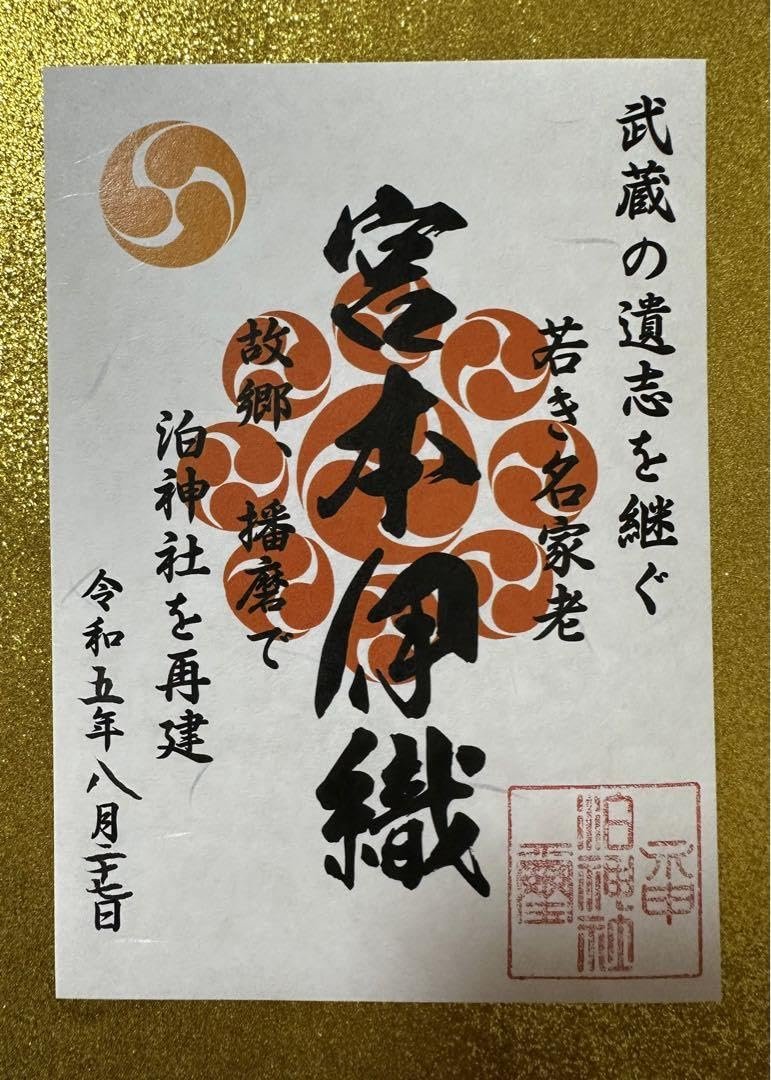 武蔵の遺志を継ぐ
若き名家老
宮本伊織
故郷、播磨で
泊神社を再建
令和五年八月二十七日
泊神社